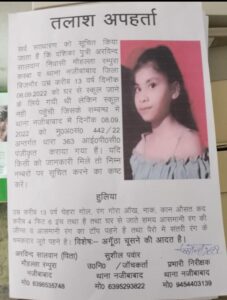 तलाश अपहर्ता
सर्व साधारण को सूचित किया
जाता है कि वंशिका पुत्री अरविन्द
सालवान निवासी मोहल्ला रम्पुरा
कस्बा व थाना नजीबाबाद जिला
बिजनौर उम्र करीब 13 वर्ष दिनांक
08.09.2022 को घर से स्कूल जाने
के लिये गयी थी लेकिन स्कूल
नही पहुँची जिसके सम्बन्ध मे
थाना नजीबाबाद मे दिनांक 08.09.
2022 को मु0अ0सं0 442/22
अन्तर्गत धारा 363 आई0पी0सी0
पंजीकृत कराया गया है। यदि
किसी को जानकारी मिले तो निम्न
नम्बरों पर सूचित करने का कष्ट
करें।
हुलिया
उम्र करीब 13 वर्ष चेहरा गोल, रंग गोरा आँख, नाक, कान औसत कद
करीब 4 फिट 6 इंच तथा है तथा घर से जाते समय आसमानी रंग की
जीन्स व आसमानी रंग का टॉप पहने है तथा पैरो मे संतरी रंग के
चमकदार जूते पहने है। विशेष:- अगूँठा चूसने की आदत है।
अरविन्द सालवान (पिता)
मोहल्ला रम्पुरा
नजीबाबाद
मो0 6396535748
सुशील पवार
उ0नि0 /जाँचकर्ता
थाना नजीबाबाद
मो0 6395293822
प्रभारी निरीक्षक
थाना नजीबाबाद
9454403139